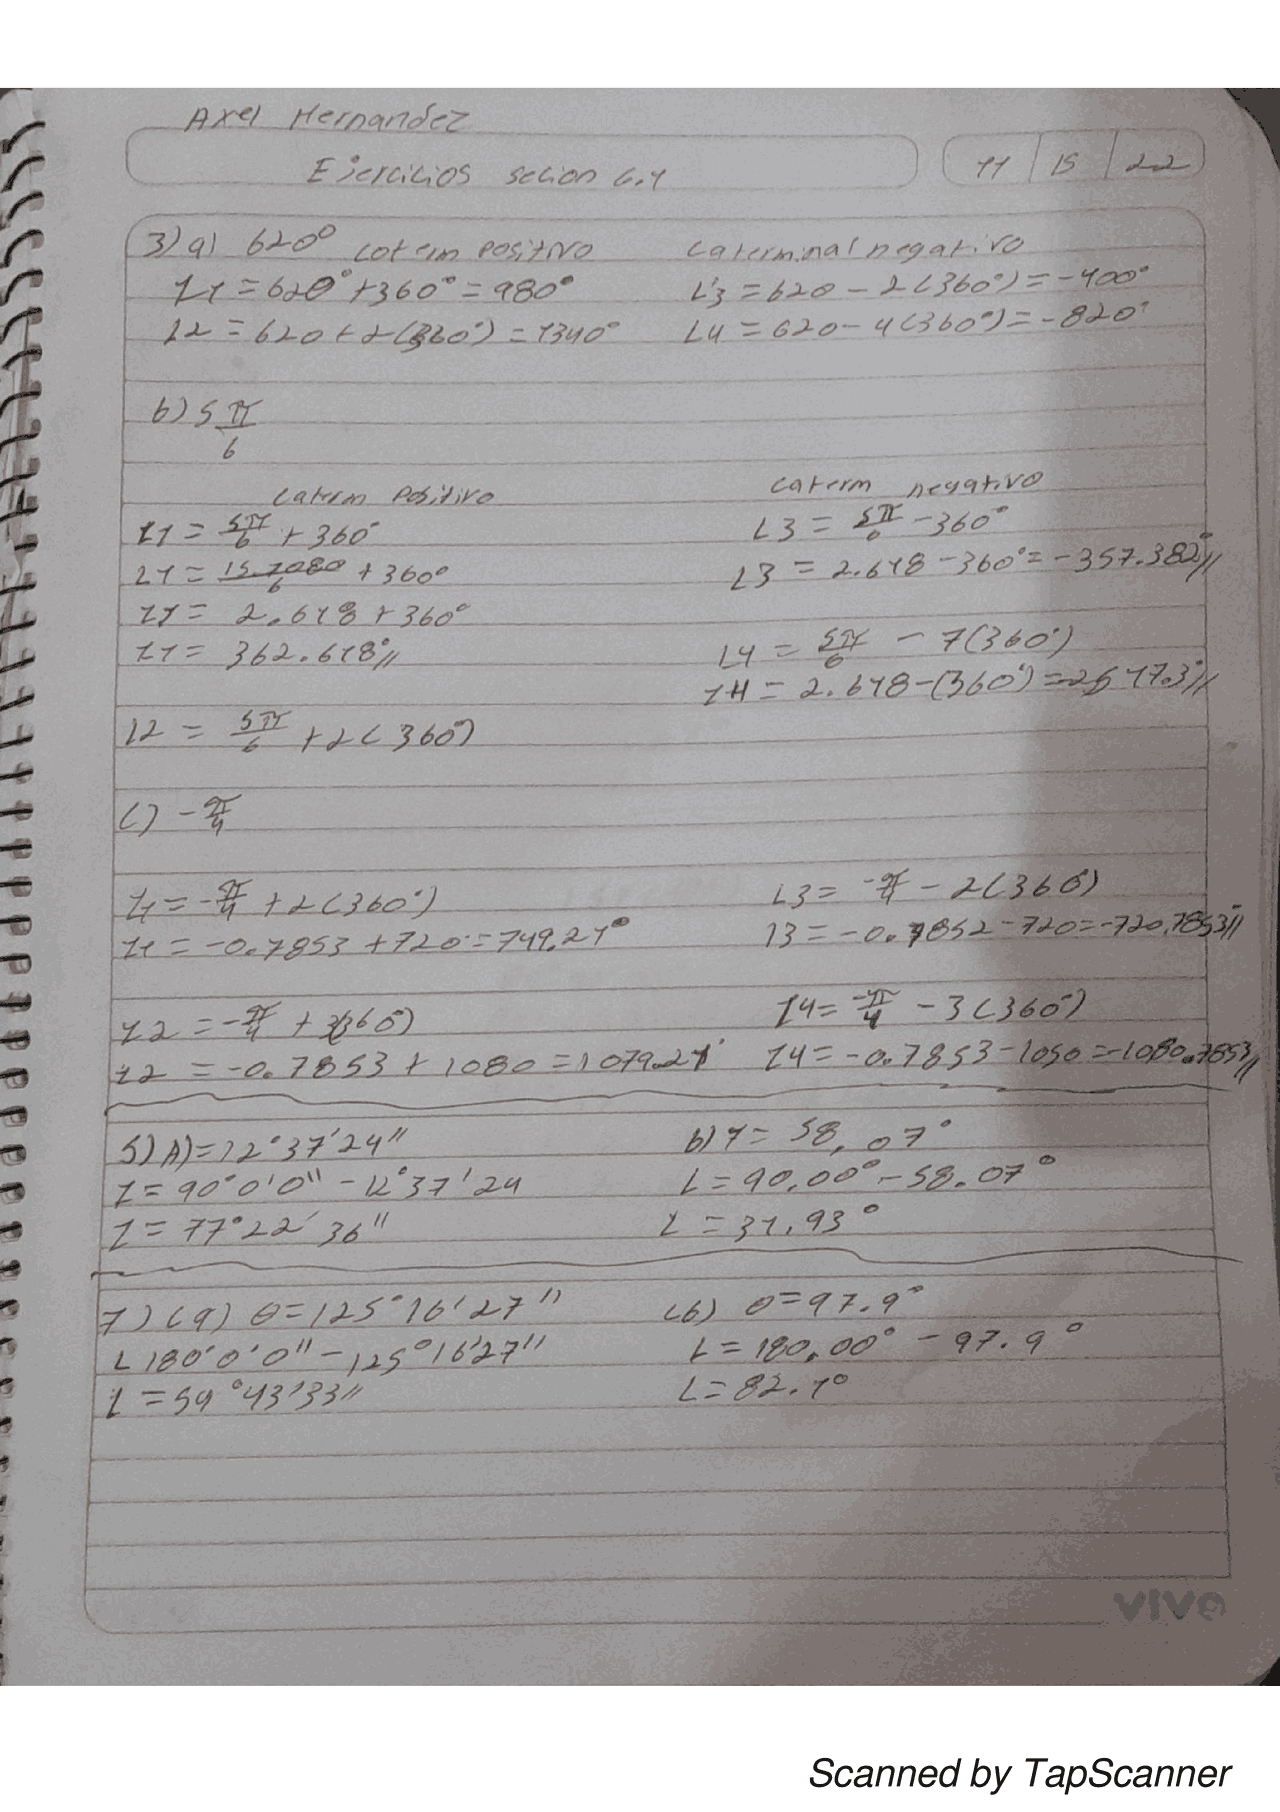 Axel Hernandez
Ejercicios secion 6.1
11 15 22
3) a) 620° coterm positivo
∠1 = 620° + 360° = 980°
∠2 = 620 + 2(360°) = 1340°
coterminal negativo
∠3 = 620 - 2(360°) = -400°
∠4 = 620 - 4(360°) = -820°
b) 5π/6
coterm positivo
∠1 = 5π/6 + 360°
∠1 = 15.7080/6 + 360°
∠1 = 2.618 + 360°
∠1 = 362.618°//
∠2 = 5π/6 + 2(360°)
coterm negativo
∠3 = 5π/6 - 360°
∠3 = 2.618 - 360° = -357.382°//
∠4 = 5π/6 - 7(360°)
∠4 = 2.618 - (360°) = -2517.3°//
c) -π/4
∠1 = -π/4 + 2(360°)
∠1 = -0.7853 + 720° = 749.21°
∠2 = -π/4 + 3(360°)
∠2 = -0.7853 + 1080 = 1079.21°
∠3 = -π/4 - 2(360°)
∠3 = -0.7852 - 720 = -720.7853°//
∠4 = -π/4 - 3(360°)
∠4 = -0.7853 - 1050 = -1080.7853//
5) A) = 12°37'24"
∠ = 90°0'0" - 12°37'24
∠ = 77°22'36"
b) 1 = 58,07°
∠ = 90,00° - 58.07°
∠ = 31.93°
7) (a) θ = 125°16'27"
∠ 180°0'0" - 125°16'27"
∠ = 54°43'33//
(b) θ = 97.9°
∠ = 180,00° - 97.9°
∠ = 82.1°
vivo
Scanned by TapScanner